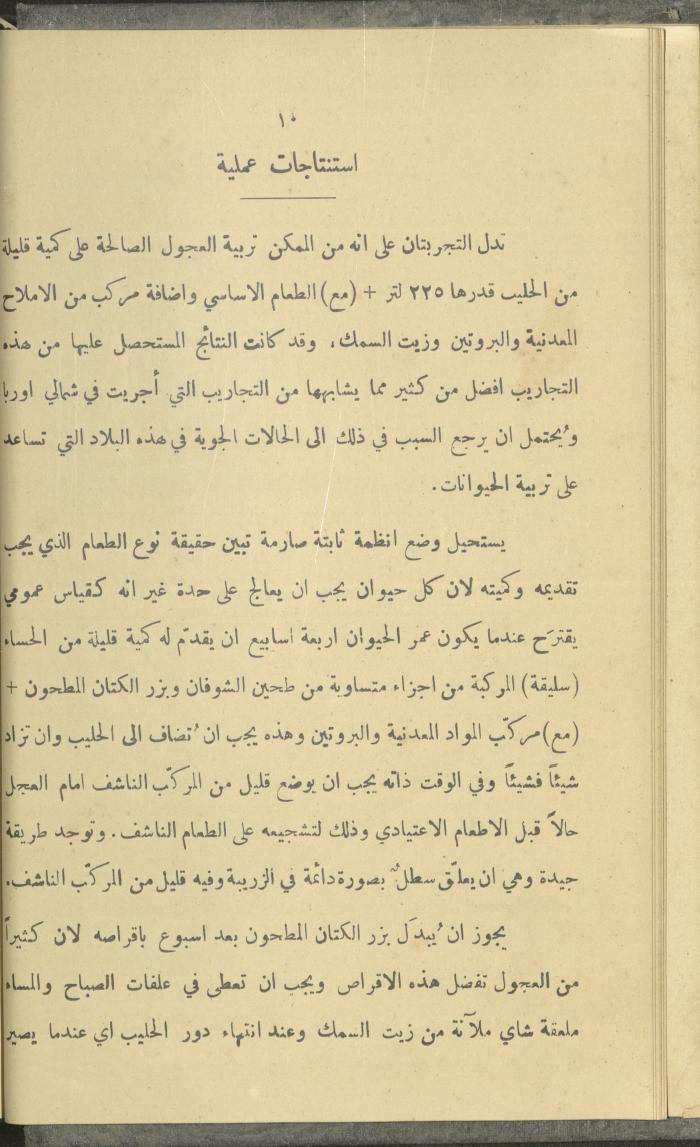 ١٠
استنتاجات عملية
تدل التجربتان على انه من الممكن تربية العجول الصالحة على كمية قليلة
من الحليب قدرها ٢٢٥ لتر + (مع) الطعام الاساسي واضافة مركب من الاملاح
المعدنية والبروتين وزيت السمك، وقد كانت النتائج المستحصل عليها من هذه
التجاريب افضل من كثير مما يشابهها من التجاريب التي أجريت في شمالي اوربا
ويُحتمل ان يرجع السبب في ذلك الى الحالات الجوية في هذه البلاد التي تساعد
على تربية الحيوانات.
يستحيل وضع انظمة ثابتة صارمة تبين حقيقة نوع الطعام الذي يجب
تقديمه وكميته لان كل حيوان يجب ان يعالج على حدة غير انه كقياس عمومي
يقترَح عندما يكون عمر الحيوان اربعة اسابيع ان يقدّم له كمية قليلة من الحساء
(سليقة) المركبة من اجزاء متساوية من طحين الشوفان وبزر الكتان المطحون +
(مع) مركّب المواد المعدنية والبروتين وهذه يجب ان تُضاف الى الحليب وان تزاد
شيئاً فشيئاً وفي الوقت ذاته يجب ان يوضع قليل من المركّب الناشف امام العجل
حالاً قبل الاطعام الاعتيادي وذلك لتشجيعه على الطعام الناشف. وتوجد طريقة
جيدة وهي ان يعلّق سطلٌ بصورة دائمة في الزريبة وفيه قليل من المركّب الناشف.
يجوز ان يُبدَل بزر الكتان المطحون بعد اسبوع باقراصه لان كثيراً
من العجول تفضل هذه الاقراص ويجب ان تعطى في علفات الصباح والمساء
ملعقة شاي ملآنة من زيت السمك وعند انتهاء دور الحليب اي عندما يصير